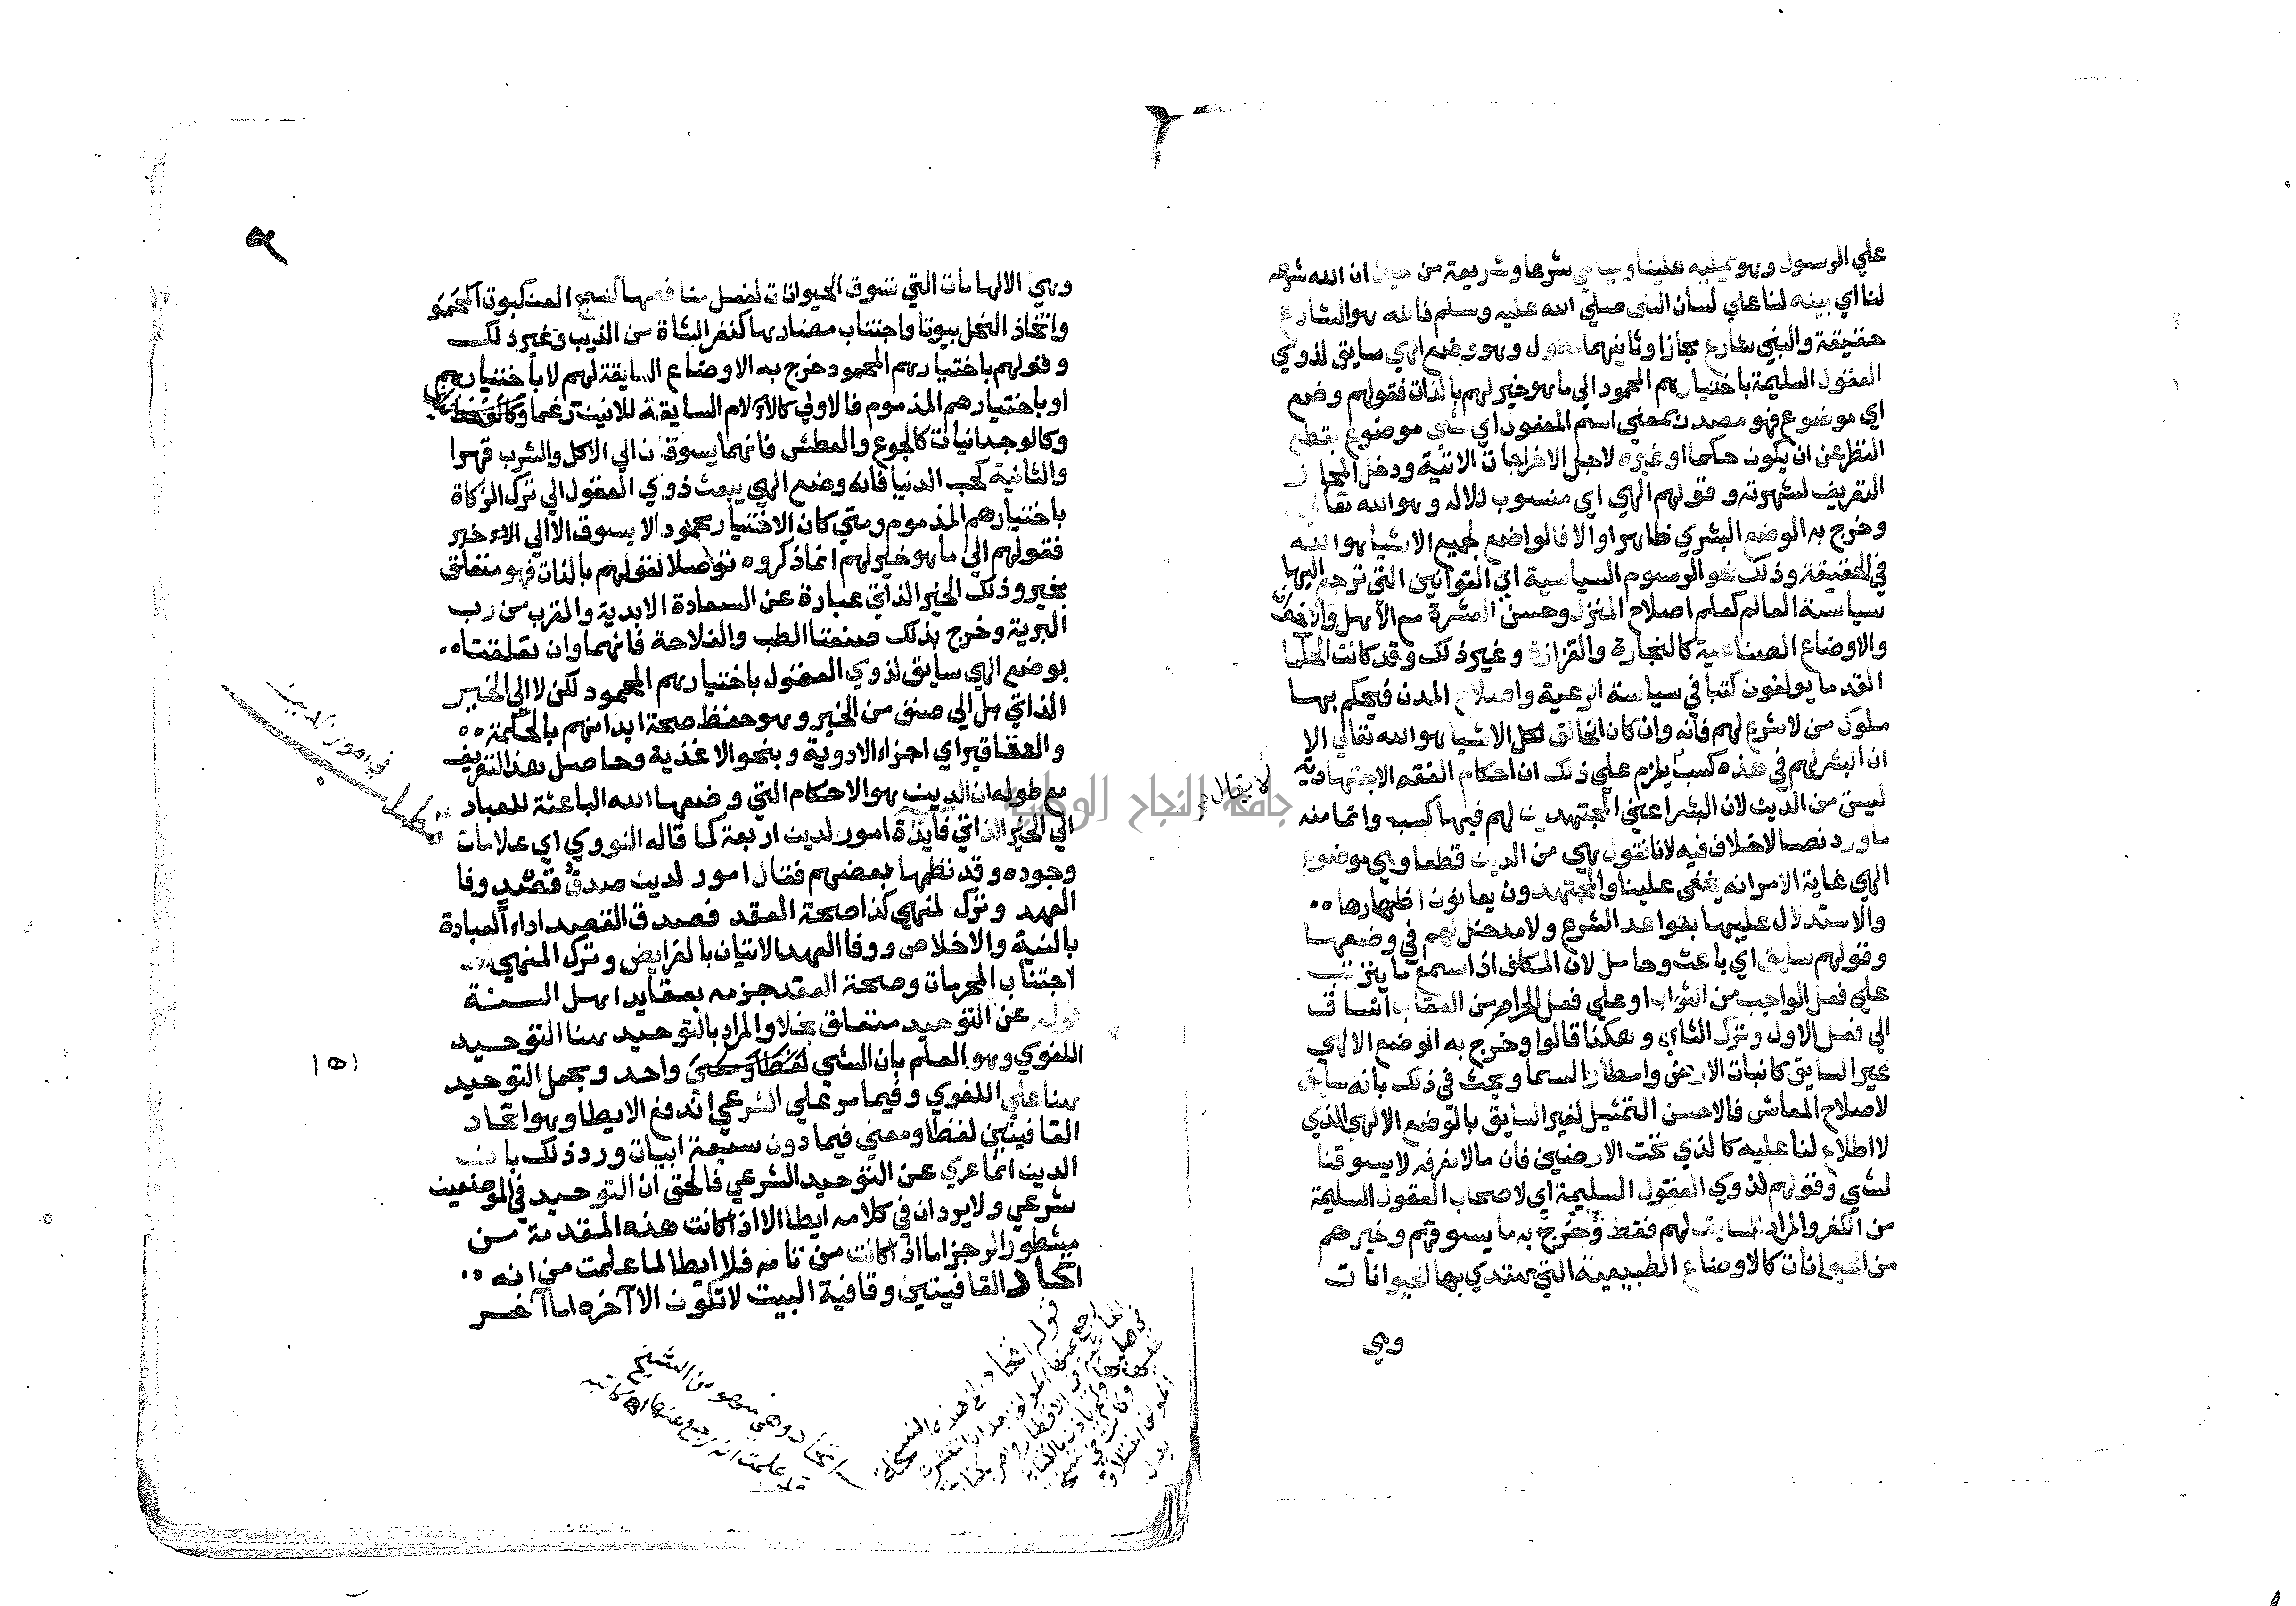 علي الرسول وهو يمليه علينا ويسمي شرعا وشريعة من حيث ان الله شرعه
لنا اي بينه لنا علي لسان النبي صلي الله عليه وسلم فالله هو الشارع
حقيقة والنبي شارع مجازا وثانيهما مطول وهو وضع الهي سايق لذوي
العقول السليمة باختيارهم المحمود الي ما هو خير لهم بالذات فقولهم وضع
اي موضوع فهو مصدر بمعني اسم المفعول اي شي موضوع بقطع
النظر عن ان يكون حكما او غيره لاجل الاخراجات الاتية ودخل المجاز
التعريف لشهرته وقولهم الهي اي منسوب للاله وهو الله تعالي
وخرج به الوضع البشري ظاهرا والا فالواضع لجميع الاشيا هو الله
في الحقيقة وذلك نحو الرسوم السياسية اي القوانين التي ترجع اليها
سياسة العالم كعلم اصلاح المنزل وحسن العشرة مع الاهل والاخوان
والاوضاع الصناعية كالنجارة والقزازة وغير ذلك وقد كانت الحكما
القدما يولفون كتبا في سياسة الرعية واصلاح المدن فيحكم بها
ملوك من لا شرع لهم فانه وان كان الخالق لكل الاشيا هو الله تعالي الا
ان البشر لهم في هذه كسب يلزم علي ذلك ان احكام الفقه الاجتهادية
لا يقال
ليست من الدين لان البشر اعني المجتهدين لهم فيها كسب وانما منه
ما ورد نصا لا خلاف فيه لانا نقول هي من الدين قطعا وهي موضوع
الهي غاية الامر انه يخفي علينا والمجتهدون يعانون اظهارها
والاستدلال عليها بقواعد الشرع ولا مدخل لهم في وضعها
وقولهم سايق اي باعث وحامل لان المكلف اذا سمع ما يترتب
علي فعل الواجب من الثواب او علي فعل الحرام من العقاب انساق
الي فعل الاول وترك الثاني وهكذا قالوا وخرج به الوضع الالهي
غير السايق كانبات الارض وامطار السما وبحث في ذلك بانه سايق
لاصلاح المعاش فالاحسن التمثيل لغير السايق بالوضع الالهي الذي
لا اطلاع لنا عليه كالذي تحت الارضين فان ما لا نعرفه لا يسوقنا
لشي وقولهم لذوي العقول السليمة اي لاصحاب العقول السليمة
من الكفر والمراد السايق لهم فقط وخرج به ما يسوقهم وغيرهم
من الحيوانات كالاوضاع الطبيعية التي تهتدي بها الحيوانات
وهي
٩
وهي الالهامات التي تسوق الحيوانات لفعل منافعها كنسج العنكبوت
واتخاذ النحل بيوتا واجتناب مضارها كنفر الشاة من الذيب وغير ذلك
وقولهم باختيارهم المحمود خرج به الاوضاع السايقة لهم لا باختيارهم
او باختيارهم المذموم فالاولي كالالام السايقة للانين رغما
وكالوجدانيات كالجوع والعطش فانهما يسوقان الي الاكل والشرب قهرا
والثانية كحب الدنيا فانه وضع الهي يبعث ذوي العقول الي ترك الزكاة
باختيارهم المذموم ومتي كان الاختيار محمودا لا يسوق الا الي خير
فقولهم الي ما هو خير لهم انما ذكروه توصلا لقولهم بالذات فهو متعلق
بخير وذلك الخير الذاتي عبارة عن السعادة الابدية والقرب من رب
البرية وخرج بذلك صنعتا الطب والفلاحة فانهما وان تعلقتا
بوضع الهي سايق لذوي العقول باختيارهم المحمود لكن لا الي الخير
الذاتي بل الي صنف من الخير وهو حفظ صحة ابدانهم بالحكمة
والعقاقير اي اجزاء الادوية وبنحو الاغذية وحاصل هذا التعريف
مع طوله ان الدين هو الاحكام التي وضعها الله الباعثة للعباد
الي الخير الذاتي فايدة امور الدين اربعة كما قاله النووي اي علامات
مطلب في امور الدين
وجوده وقد نظمها بعضهم فقال امور لدين صدق قصد وفا
العهد وترك لمنهي كذا صحة العقد فصدق القصد اداء العبادة
بالنية والاخلاص ووفا العهد الاتيان بالفرايض وترك المنهي
اجتناب المحرمات وصحة العقد جزمه بعقايد اهل السنة
قوله عن التوحيد متعلق بخلا والمراد بالتوحيد هنا التوحيد
اللغوي وهو العلم بان الشي واحد ويحمل التوحيد
هنا علي اللغوي وفيما مر علي الشرعي اندفع الايطا وهو اتحاد
القافيتين لفظا ومعني فيما دون سبعة ابيات ورد ذلك بان
الدين انما عري عن التوحيد الشرعي فالحق ان التوحيد في الموضعين
شرعي ولا يرد ان في كلامه ايطا الا اذا كانت هذه المقدمة من
مشطور الرجز اما اذا كانت من تامه فلا ايطا لما علمت من انه
اتحاد القافيتين وقافية البيت لا تكون الا آخره اما آخر
اتحاد وهي سهو من الشيخ
قد علمت انه رجع عنها اه كاتبه
قوله اتحاد الخ هذه النسخة
جامعة النجاح الوطنية